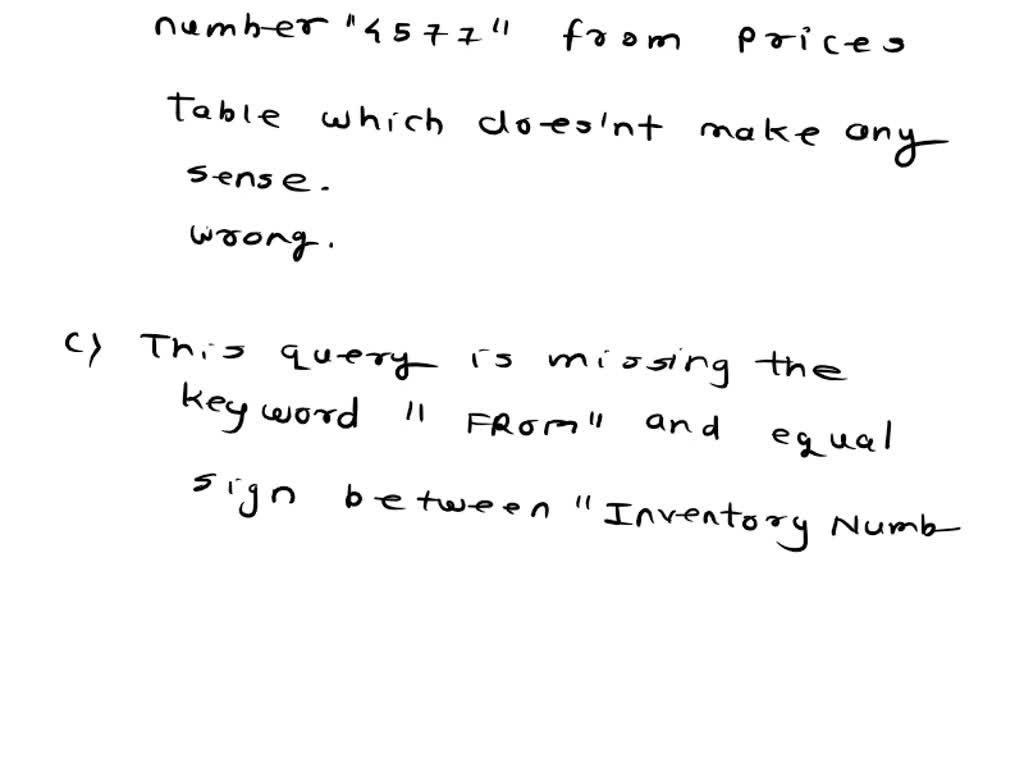 number "4577" from prices
table which does'nt make any
sense.
wrong.
c) This query is missing the
keyword "FROM" and equal
sign between "Inventory Numb